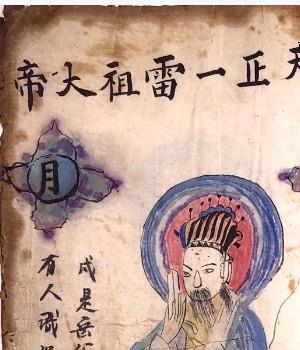 正一雷祖大帝
月
成是岳
有人識